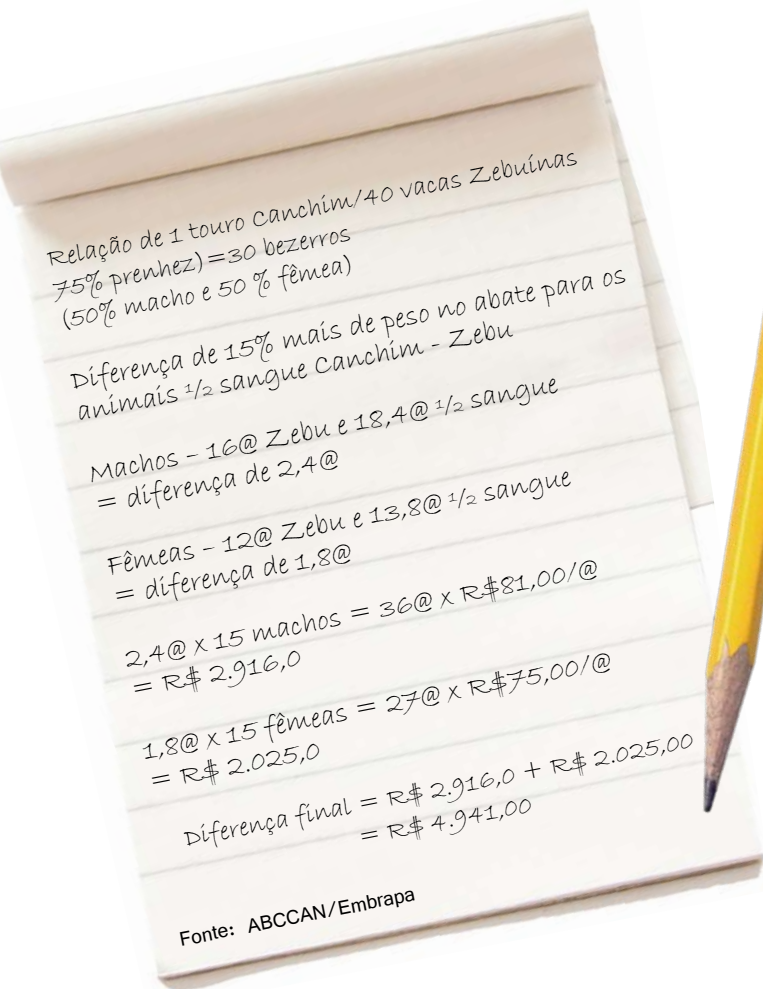 Relação de 1 touro Canchim/40 vacas Zebuínas
75% prenhez)=30 bezerros
(50% macho e 50 % fêmea)
Diferença de 15% mais de peso no abate para os
animais ½ sangue Canchim - Zebu
Machos – 16@ Zebu e 18,4@ ½ sangue
= diferença de 2,4@
Fêmeas – 12@ Zebu e 13,8@ ½ sangue
= diferença de 1,8@
2,4@ x 15 machos = 36@ x R$81,00/@
= R$ 2.916,0
1,8@ x 15 fêmeas = 27@ x R$75,00/@
= R$ 2.025,0
Diferença final = R$ 2.916,0 + R$ 2.025,00
= R$ 4.941,00
Fonte: ABCCAN/Embrapa